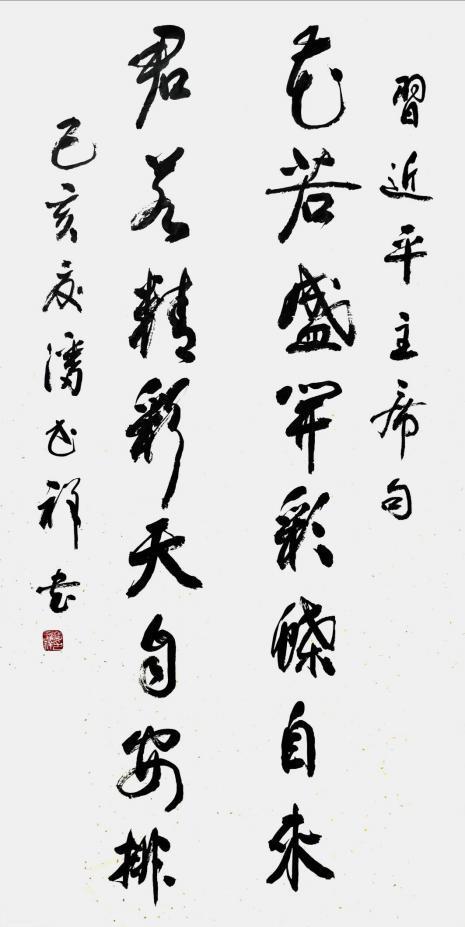 習近平主席句
花若盛開彩蝶自来
君若精彩天自安排
己亥夏潘祥书